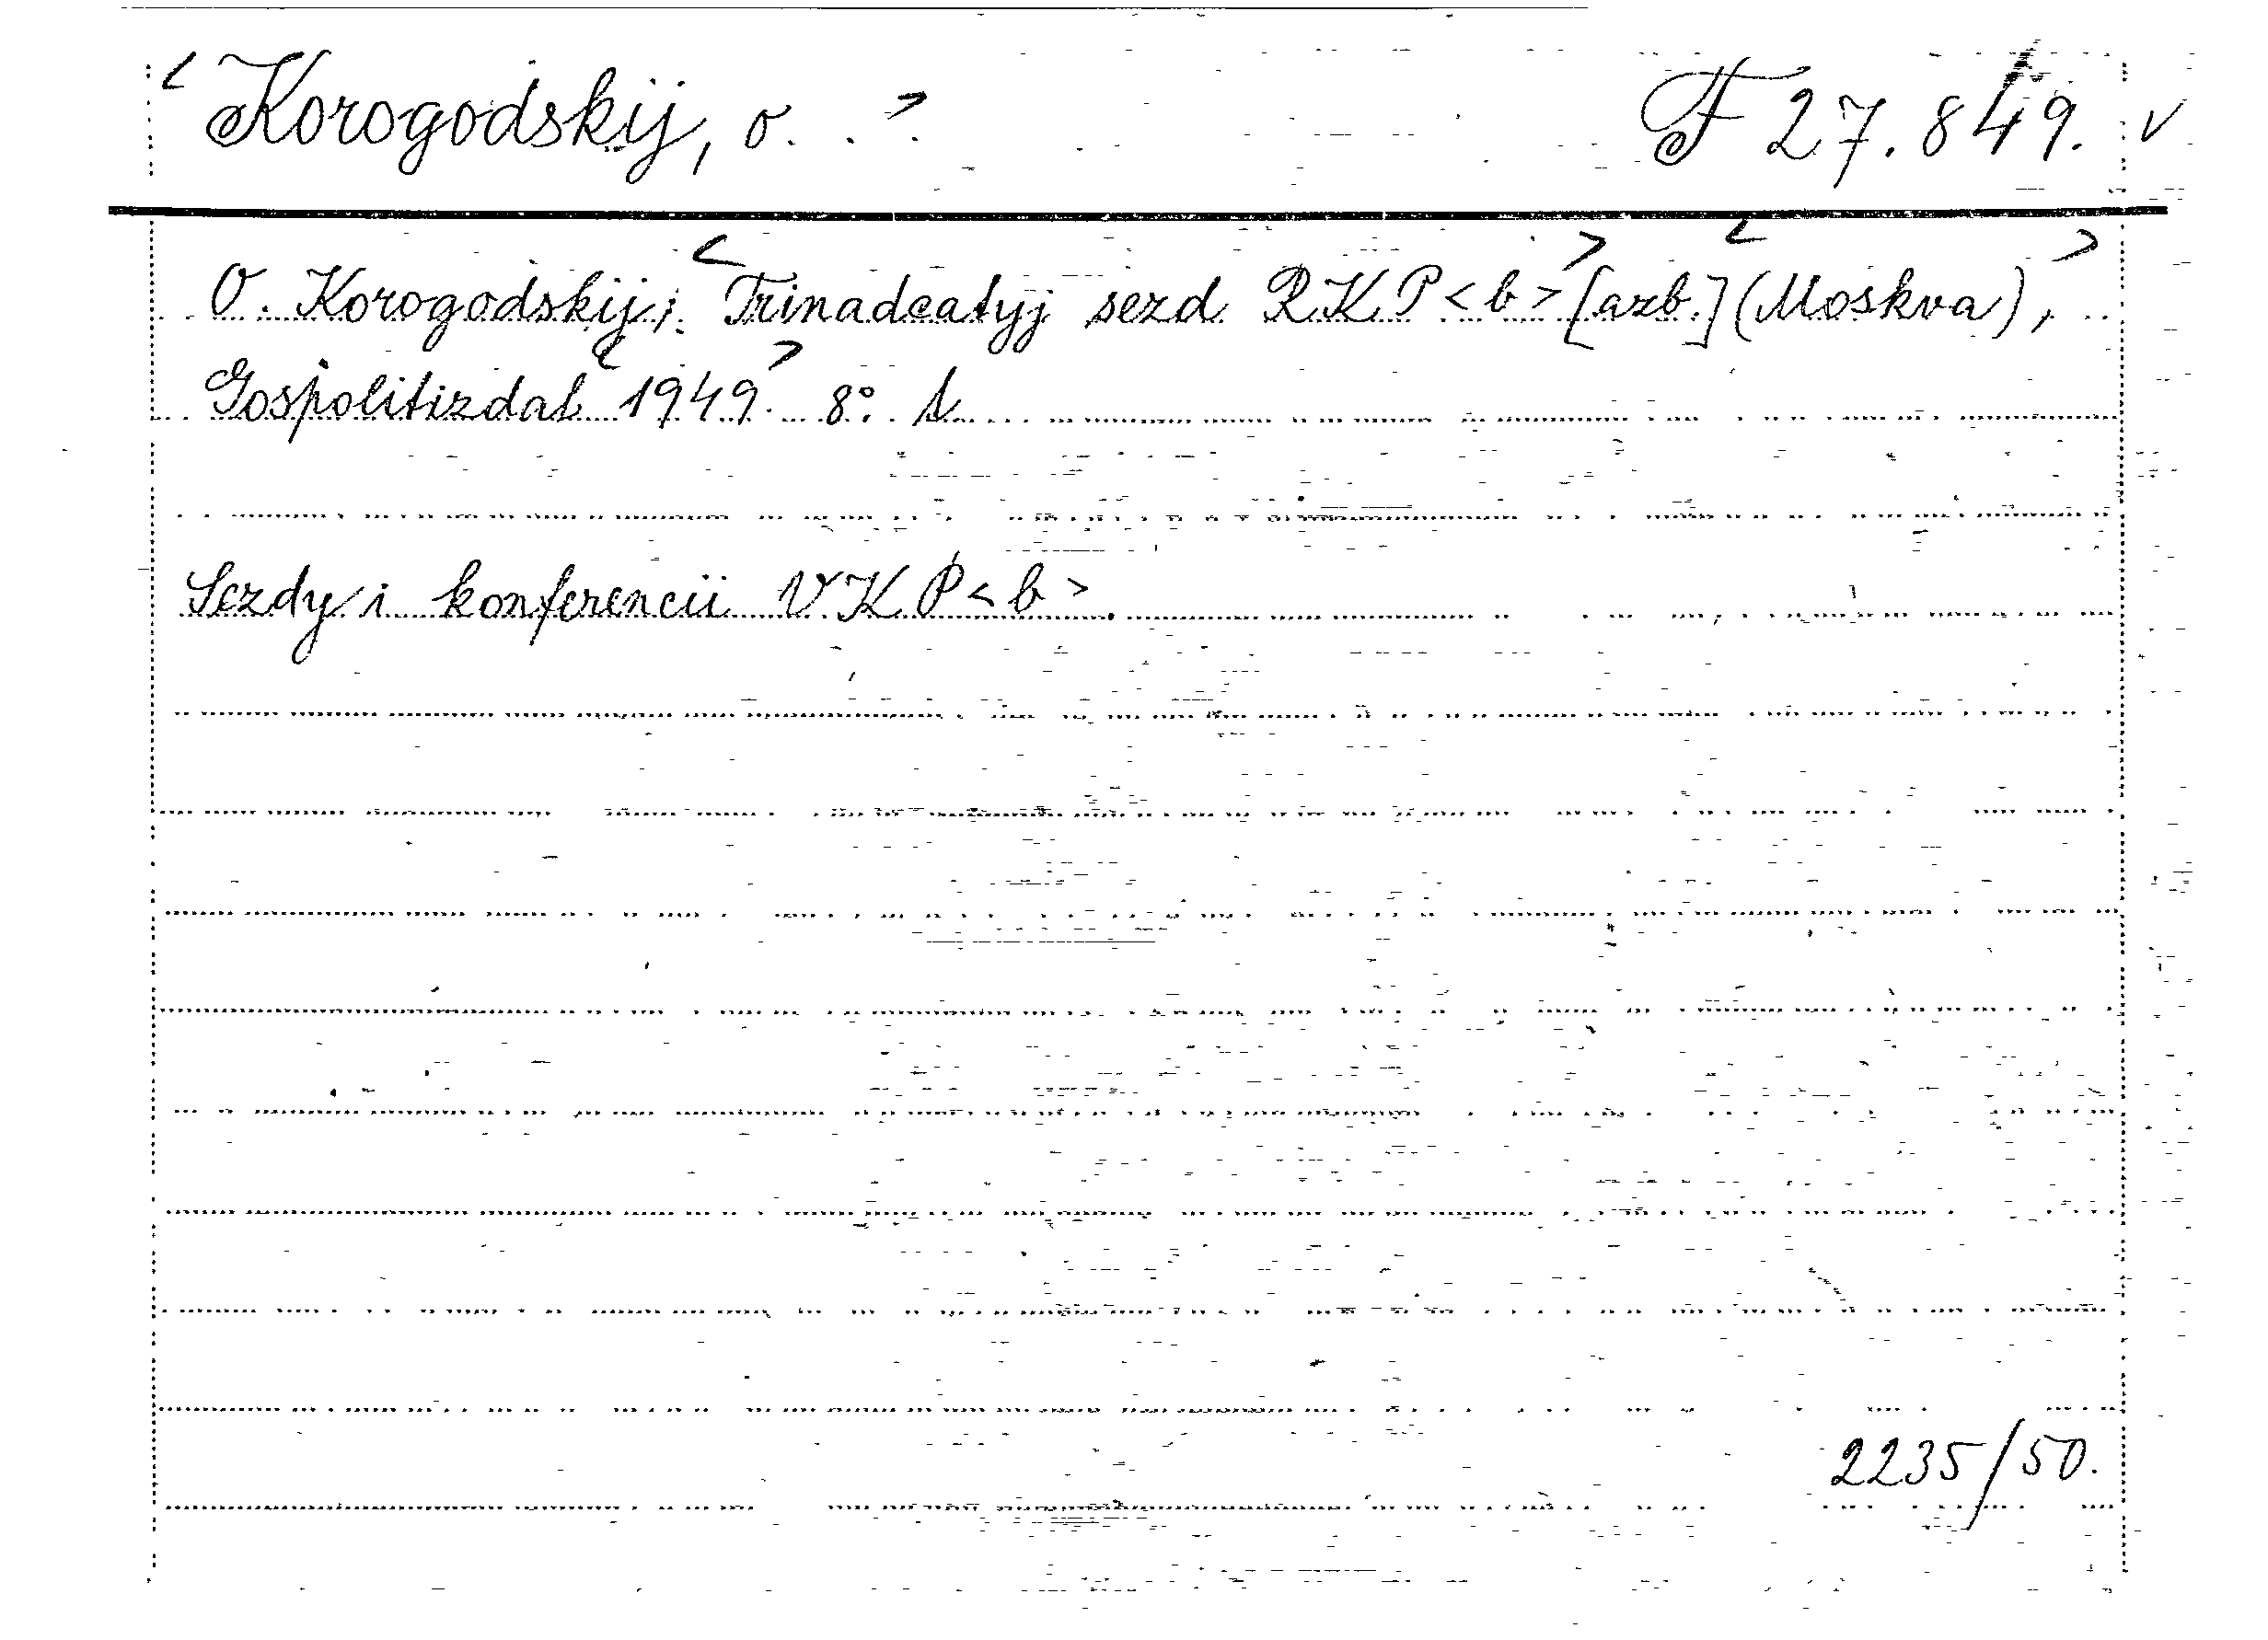 <Korogodskij, o. . .> F 27.849. v
O. Korogodskij: <Trinadcatyj sezd RKP<b>> [azb.] <(Moskva),>
Gospolitizdat <1949.> 8°.
Sezdy i konferencii VKP<b>.
2235/50.